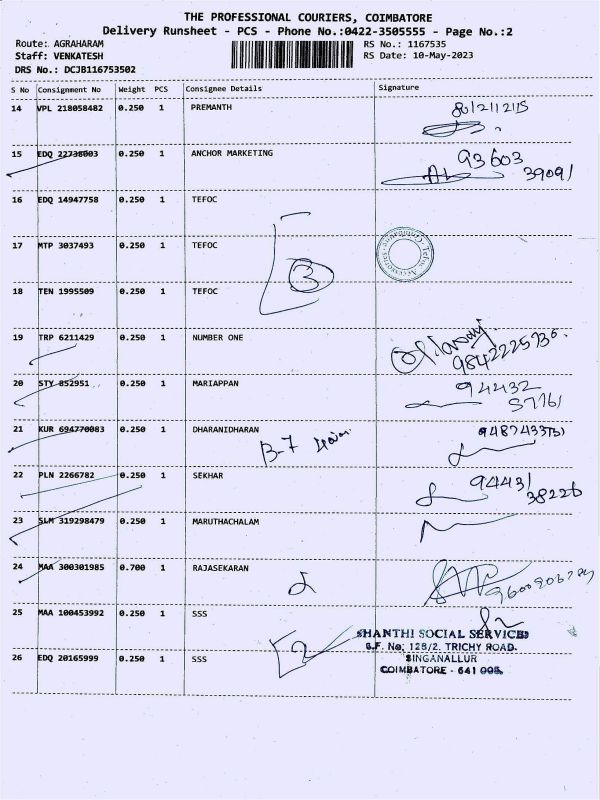 THE PROFESSIONAL COURIERS, COIMBATORE
Delivery Runsheet - PCS - Phone No.:0422-3505555 - Page No.:2
Route: AGRAHARAM
RS No.: 1167535
Staff: VENKATESH
RS Date: 10-May-2023
DRS No.: DCJB116753502
S No Consignment No Weight PCS Consignee Details Signature
14 VPL 218058482 0.250 1 PREMANTH
15 EDQ 22738003 0.250 1 ANCHOR MARKETING 93603
39091
16 EDQ 14947758 0.250 1 TEFOC
17 MTP 3037493 0.250 1 TEFOC
3
18 TEN 1995509 0.250 1 TEFOC
19 TRP 6211429 0.250 1 NUMBER ONE
9842225730.
20 STY 852951 0.250 1 MARIAPPAN 94432
57761
21 KUR 694770083 0.250 1 DHARANIDHARAN
B-7
22 PLN 2266782 0.250 1 SEKHAR 94431
38226
23 SLM 319298479 0.250 1 MARUTHACHALAM
24 MAA 300301985 0.700 1 RAJASEKARAN
25 MAA 100453992 0.250 1 SSS
SHANTHI SOCIAL SERVICES
S.F. No; 128/2. TRICHY ROAD.
2
26 EDQ 20165999 0.250 1 SSS SINGANALLUR
COIMBATORE - 641 005.